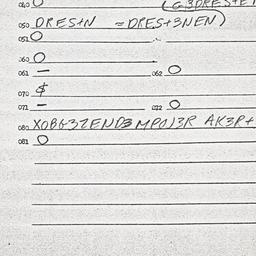 040 O (G3DRESTEI
050 DRES+N =DRES+3NEN)
051 O
060 O
061 — 062 O
070 $
071 — 072 O
080 XOBG3ZEND3MPO)3R AK3R+
081 O